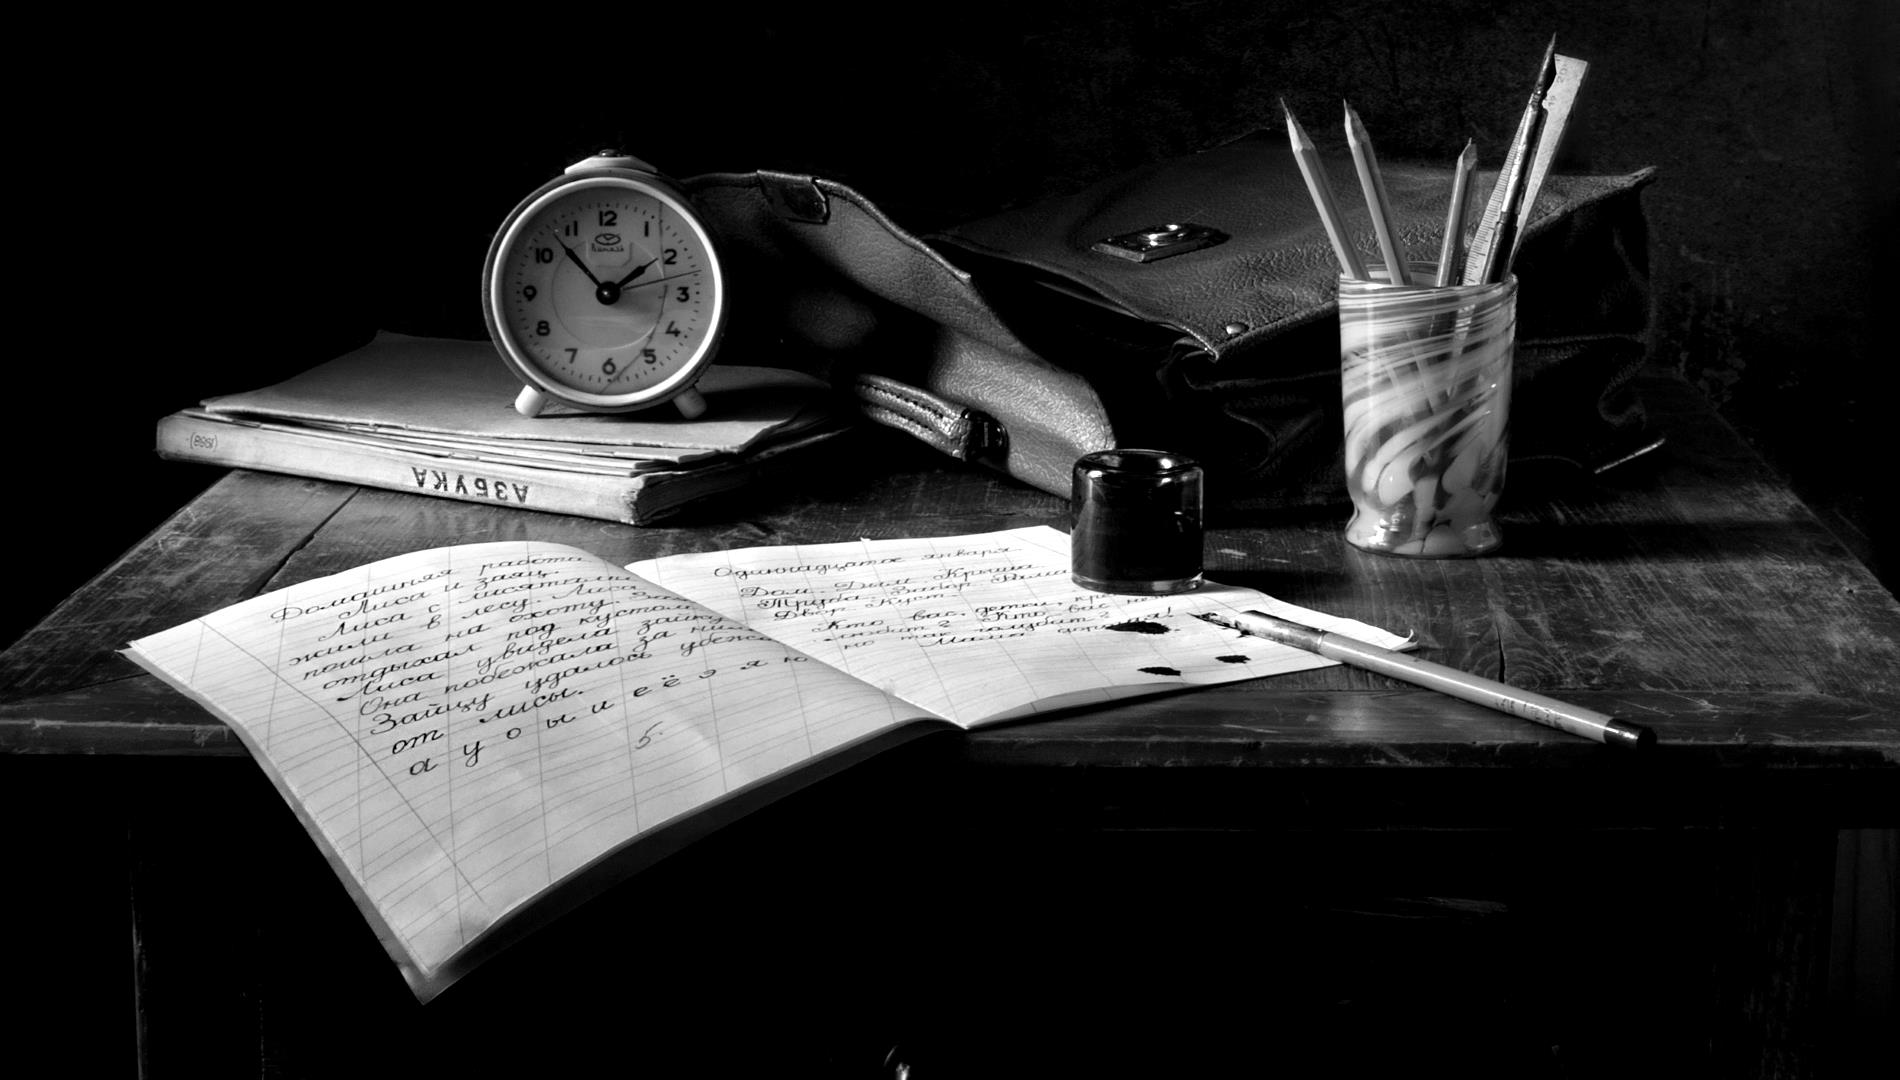 12
11
1
10
2
9
3
8
4
7
5
6
(1958)
АЗБУКА
20
Домашняя работа
Лиса и заяц.
Лиса с лисятами
жили в лесу. Лиса
пошла на охоту.
отдыхал под кустом.
Лиса увидела зайку
Она побежала за ним
Зайцу удалось убежа
от лисы.
а у о ы и е ё э я ю
5.
Одиннадцатое января.
Дом. Дым. Крыша.
Труба. Забор. Рама
Двор. Куст.
Кто вас, детки,
любит? Кто вас не
но так голубит?
Мама дорогая!